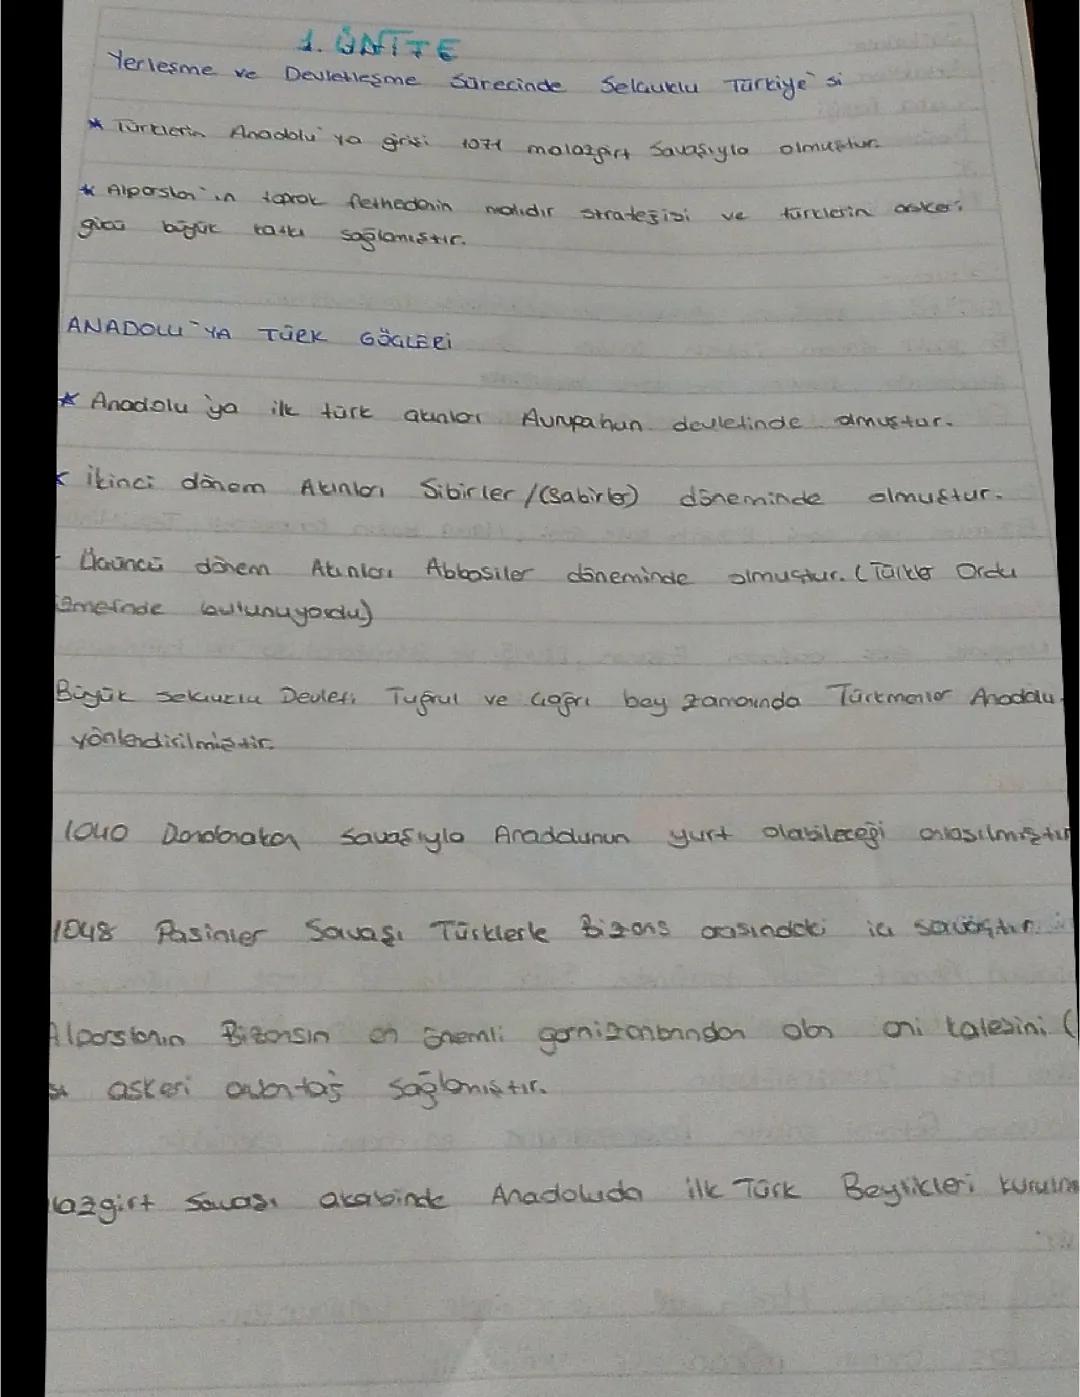 1. ÜNİTE
Yerleşme ve Devletleşme Sürecinde Selçuklu Türkiye'si
* Türklerin Anadolu'ya girişi 1071 malazgirt Savaşıyla olmuştur.
* Alparslan'ın toprak fethedenin malıdır stratejisi ve türklerin askeri
gücü büyük katkı sağlamıştır.
ANADOLU'YA TÜRK GÖÇLERİ
* Anadolu'ya ilk türk akınları Avrupa hun devletinde olmuştur.
* İkinci dönem Akınları Sibirler /(Sabirler) döneminde olmuştur.
Üçüncü dönem Akınları Abbasiler döneminde olmuştur. (Türkler Ordu
bulunuyordu)
Büyük Selçuklu Devleti Tuğrul ve Çağrı bey zamanında Türkmenler Anadolu
yönlendirilmiştir.
1040 Dandanakan savaşıyla Anadolunun yurt olabileceği anlaşılmıştır
1048 Pasinler Savaşı Türklerle Bizans arasındaki ilk savaştır.
Alparslanın Bizansın en önemli garnizonlarından olan ani kalesini (
askeri avantaj sağlamıştır.
lazgirt Savaşı akabinde Anadoluda ilk Türk Beylikleri kurulma